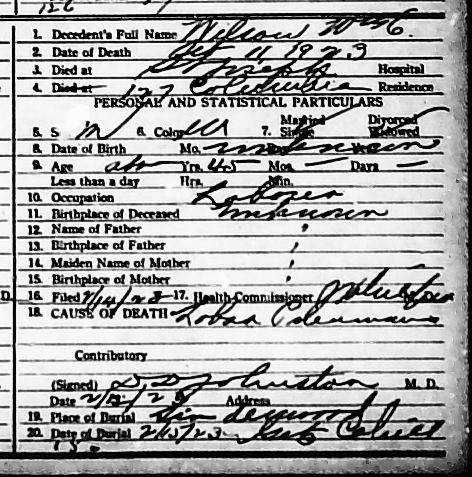 126
1. Decedent's Full Name Wilson Wm C.
2. Date of Death Feb 11 1923
3. Died at St Josephs Hospital
4. Died at 127 Columbia Residence
PERSONAL AND STATISTICAL PARTICULARS
5. S M 6. Color W 7. Married Single Divorced Widowed
8. Date of Birth Mo. unknown
9. Age abt Yrs. 45 Mos. — Days —
Less than a day Hrs. Min.
10. Occupation Laborer
11. Birthplace of Deceased Unknown
12. Name of Father
13. Birthplace of Father
14. Maiden Name of Mother
15. Birthplace of Mother
D. 16. Filed 2/14/23 17. Health Commissioner
18. CAUSE OF DEATH Lobar Pneumonia
Contributory
(Signed) Johnston M. D.
Date 2/12/23 Address
19. Place of Burial Lindenwood
D. 20. Date of Burial 2/13/23
15.